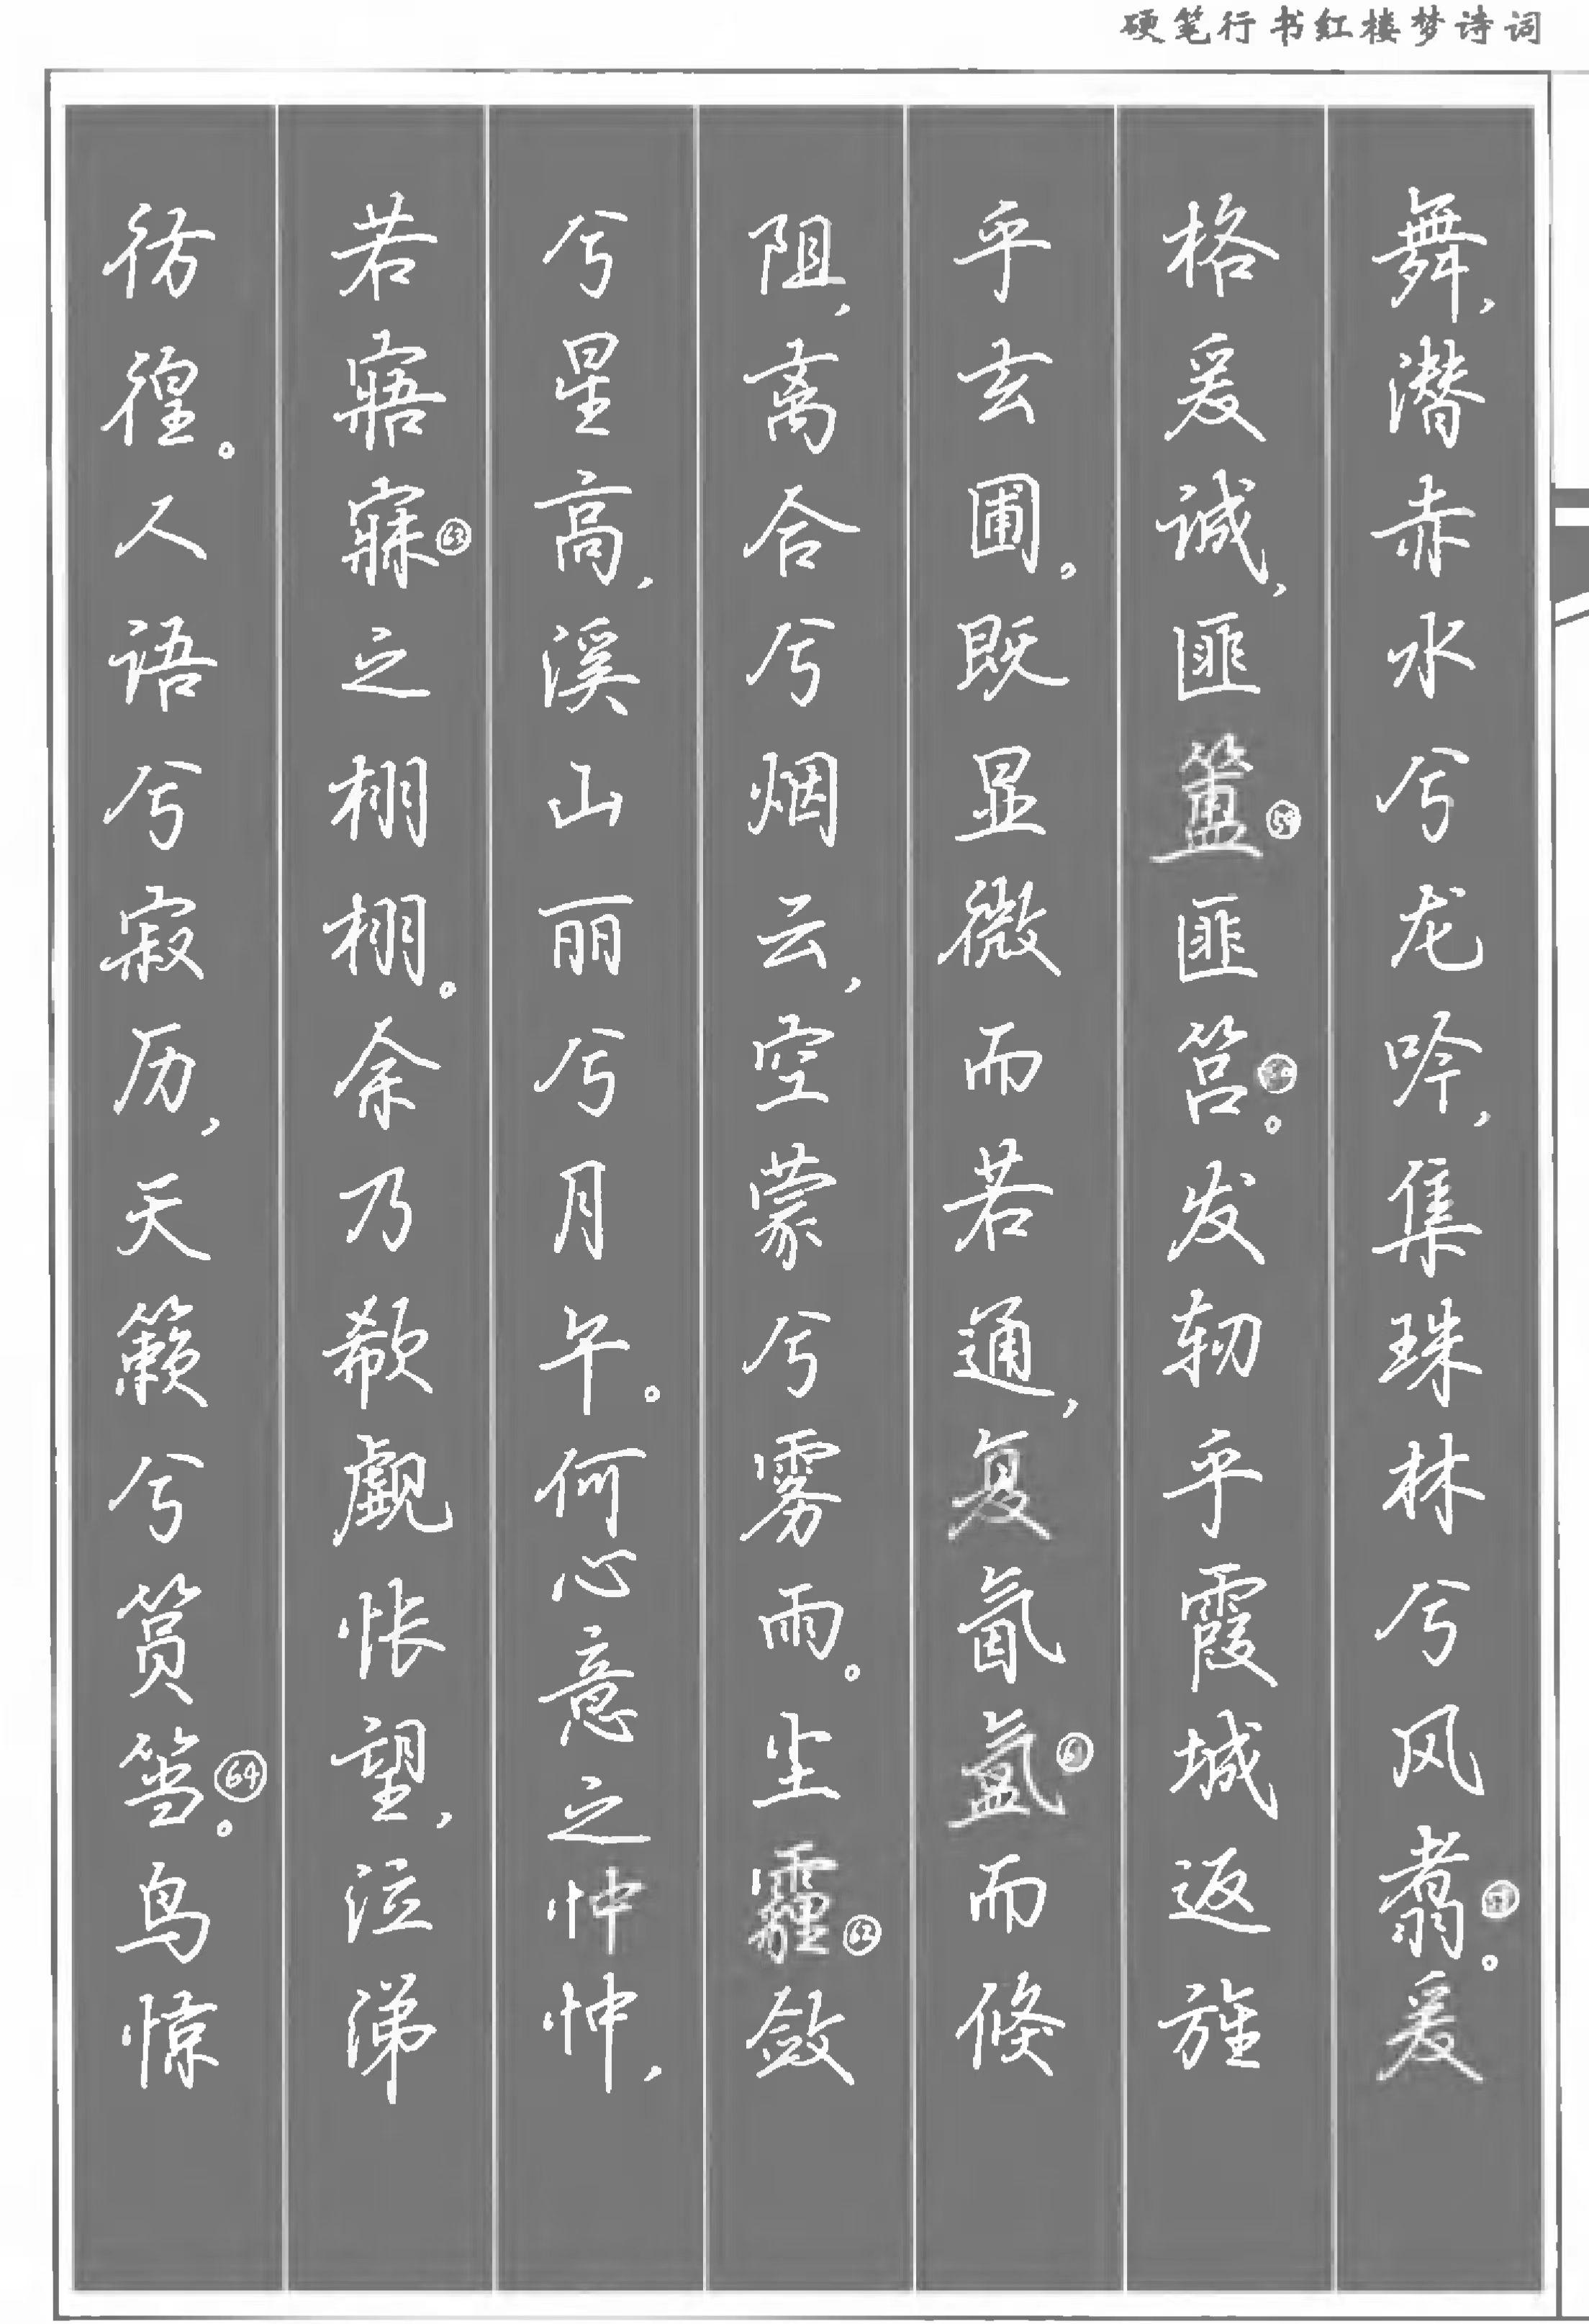 硬笔行书红楼梦诗词
舞,潜赤水兮龙吟,集珠林兮凤翥。爰
格爰诚,匪簠59匪筥。发轫乎霞城返旌
乎玄圃。既显微而若通,复氤氲61而倏
阻,离合兮烟云,空蒙兮雾雨。尘霾62敛
兮星高,溪山丽兮月午。何心意之忡忡,
若寤寐63之栩栩。余乃欷觑怅望,泣涕
彷徨。人语兮寂历,天籁兮筼筜64。鸟惊